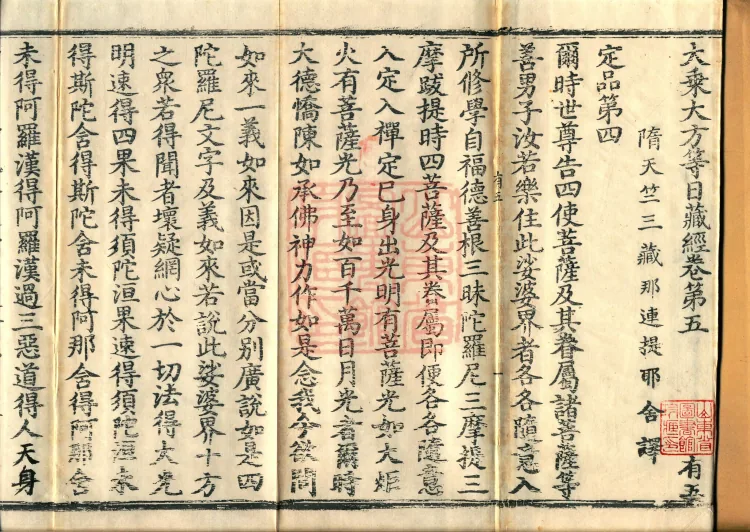 大乘大方等日藏經卷第五
有五
隋天竺三藏那連提耶舍譯
定品第四
爾時世尊告四使菩薩及其眷屬諸菩薩等
善男子汝若樂住此娑婆界者各各隨意入
有五
所修學自福德善根三昧陀羅尼三摩提三
摩跋提時四菩薩及其眷屬即便各各隨意
入定入禪定已身出光明有菩薩光如大炬
火有菩薩光乃至如百千萬日月光者爾時
大德憍陳如承佛神力作如是念我今欲問
如來一義如來因是或當分別廣說如是四
陀羅尼文字及義如來若說此娑婆界十方
之衆若得聞者壞疑網心於一切法得大光
明速得四果未得須陀洹果速得須陀洹未
得斯陀舍得斯陀舍未得阿那舍得阿那舍
未得阿羅漢得阿羅漢過三惡道得人天身
山東省圖書館